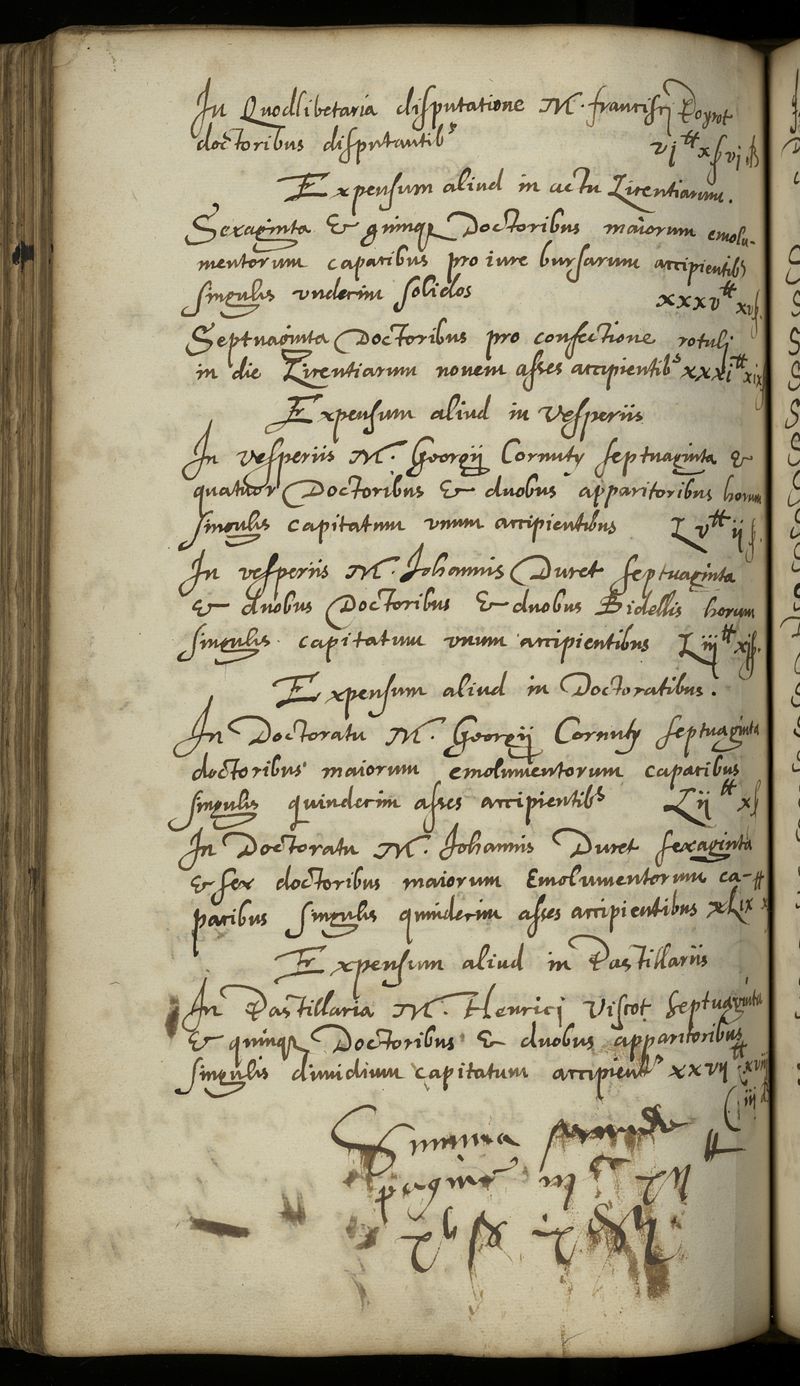 In Quodlibetaria disputatione M. francisci Poyrot
doctoribus disputantibs vi₶ xvi ß
Expensum aliud in actu Licentiarum.
Sexaginta & quinq Doctoribus maiorum emolu-
mentorum capacibus pro iure bursarum accipientibs
singulis vndecim solidos xxxv₶ xv ß
Septuaginta Doctoribus pro confectione rotuli
in die Licentiarum novem asses accipientibs xxxi₶ xi ß
Expensum aliud in Vesperiis
In vesperiis M. Georgij Cornuty septuaginta &
quatuor Doctoribus & duobus apparitoribus horum
singulis capitatum vnum accipientibus Lv₶ ij ß
In vesperiis M. Johannis Duret septuaginta
& duobus Doctoribus & duobus Bidellis horum
singulis capitatum vnum accipientibus Liij₶ xij ß.
Expensum aliud in Doctoratibus.
In Doctoratu M. Georgij Cornuty septuaginta
doctoribus maiorum emolumentorum capacibus
singulis quindecim asses accipientibs Lij₶ x ß
In Doctoratu M. Johannis Duret sexaginta
& sex doctoribus maiorum Emolumentorum ca-
pacibus singulis quindecim asses accipientibus xLix₶ x
Expensum aliud in Pastillariis
In Pastillaria M. Henrici Viscot septuaginta
& quinq Doctoribus & duobus apparitoribus
singulis dimidium capitatum accipient xxvij₶ xvij
iij d
Summa secunde
pagine iij c xij ₶
xv ß ix d